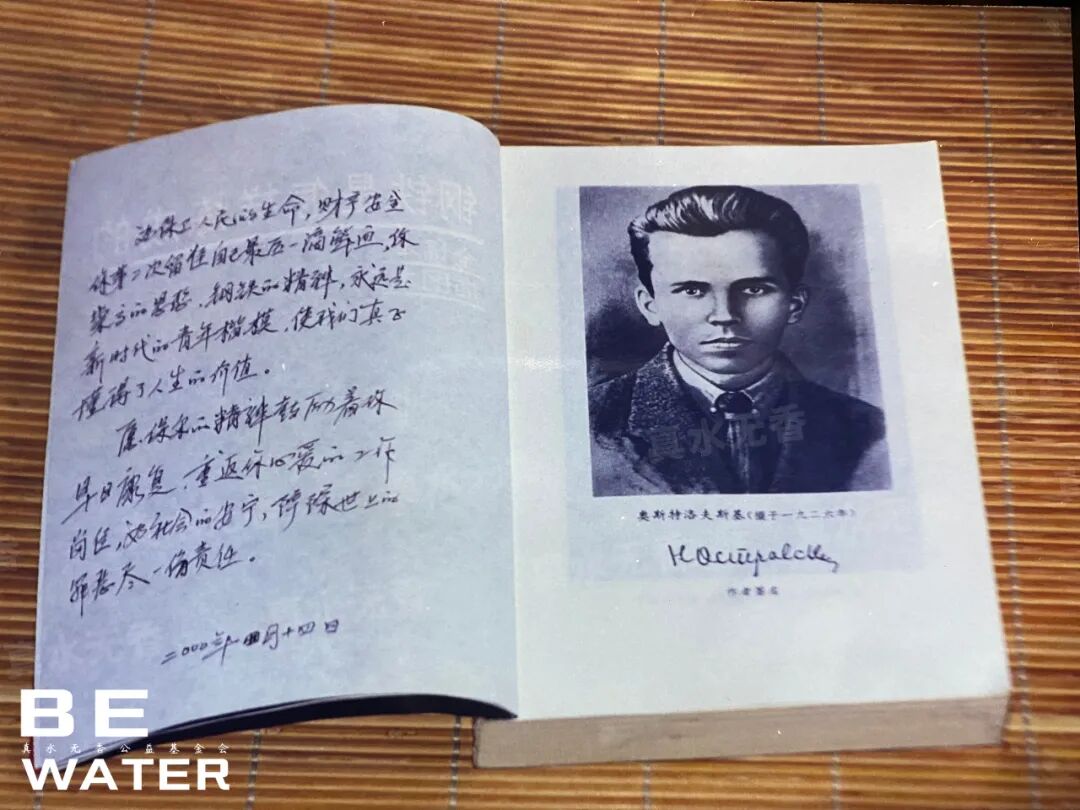 为保卫人民的生命,财产安全
你第二次留住自己最后一滴鲜血,你
崇高的思想、钢铁的精神,永远是
新时代的青年楷模,使我们真正
懂得了人生的价值。
愿保尔的精神鼓励着你
早日康复、重返你心爱的工作
岗位,为社会的安宁,铲除世上的
罪恶尽一份责任。
二000年四月十四日
奥斯特洛夫斯基(摄于一九二六年)
作者签名
真水无香
BE
真水无香公益基金会
WATER